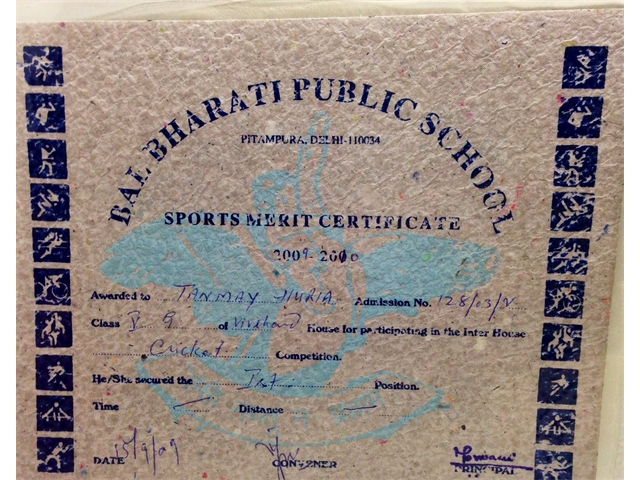 BAL BHARATI PUBLIC SCHOOL
PITAMPURA, DELHI-110034
SPORTS MERIT CERTIFICATE
2009-2010
Awarded to TANMAY JHURIA Admission No. 128/03/N
Class V G of Vivekanand House for participating in the Inter House
Cricket Competition.
He/She secured the Ist Position.
Time — Distance —
DATE 15/9/09 CONVENER PRINCIPAL